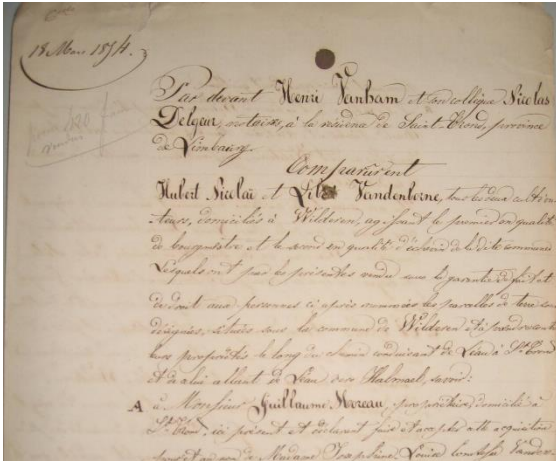 18 Mars 1854.
Par devant Henri Vanham et son collègue Nicolas
Delgeur, notaires, à la résidence de Saint-Trond, province
de Limbourg.
Comparurent
Hubert Nicolaï et Vandenborne, tous deux cultiva-
teurs, domiciliés à Wilderen, agissant le premier en qualité
de bourgmestre et le second en qualité d'échevin de la dite commune
Lesquels ont par les présentes vendu sous la garantie de fait et
de droit aux personnes ci après nommées les parcelles de terre
désignées, situées sous la commune de Wilderen
leurs propriétés le long du chemin conduisant de Léau à St Trond
et à celui allant de Léau vers Halmael, savoir:
A à Monsieur Guillaume Moreau, propriétaire, domicilié à
St Trond, ici présent et déclarant faire et accepter cette acquisition
pour et au nom de Madame Josephine Louise Comtesse Vander